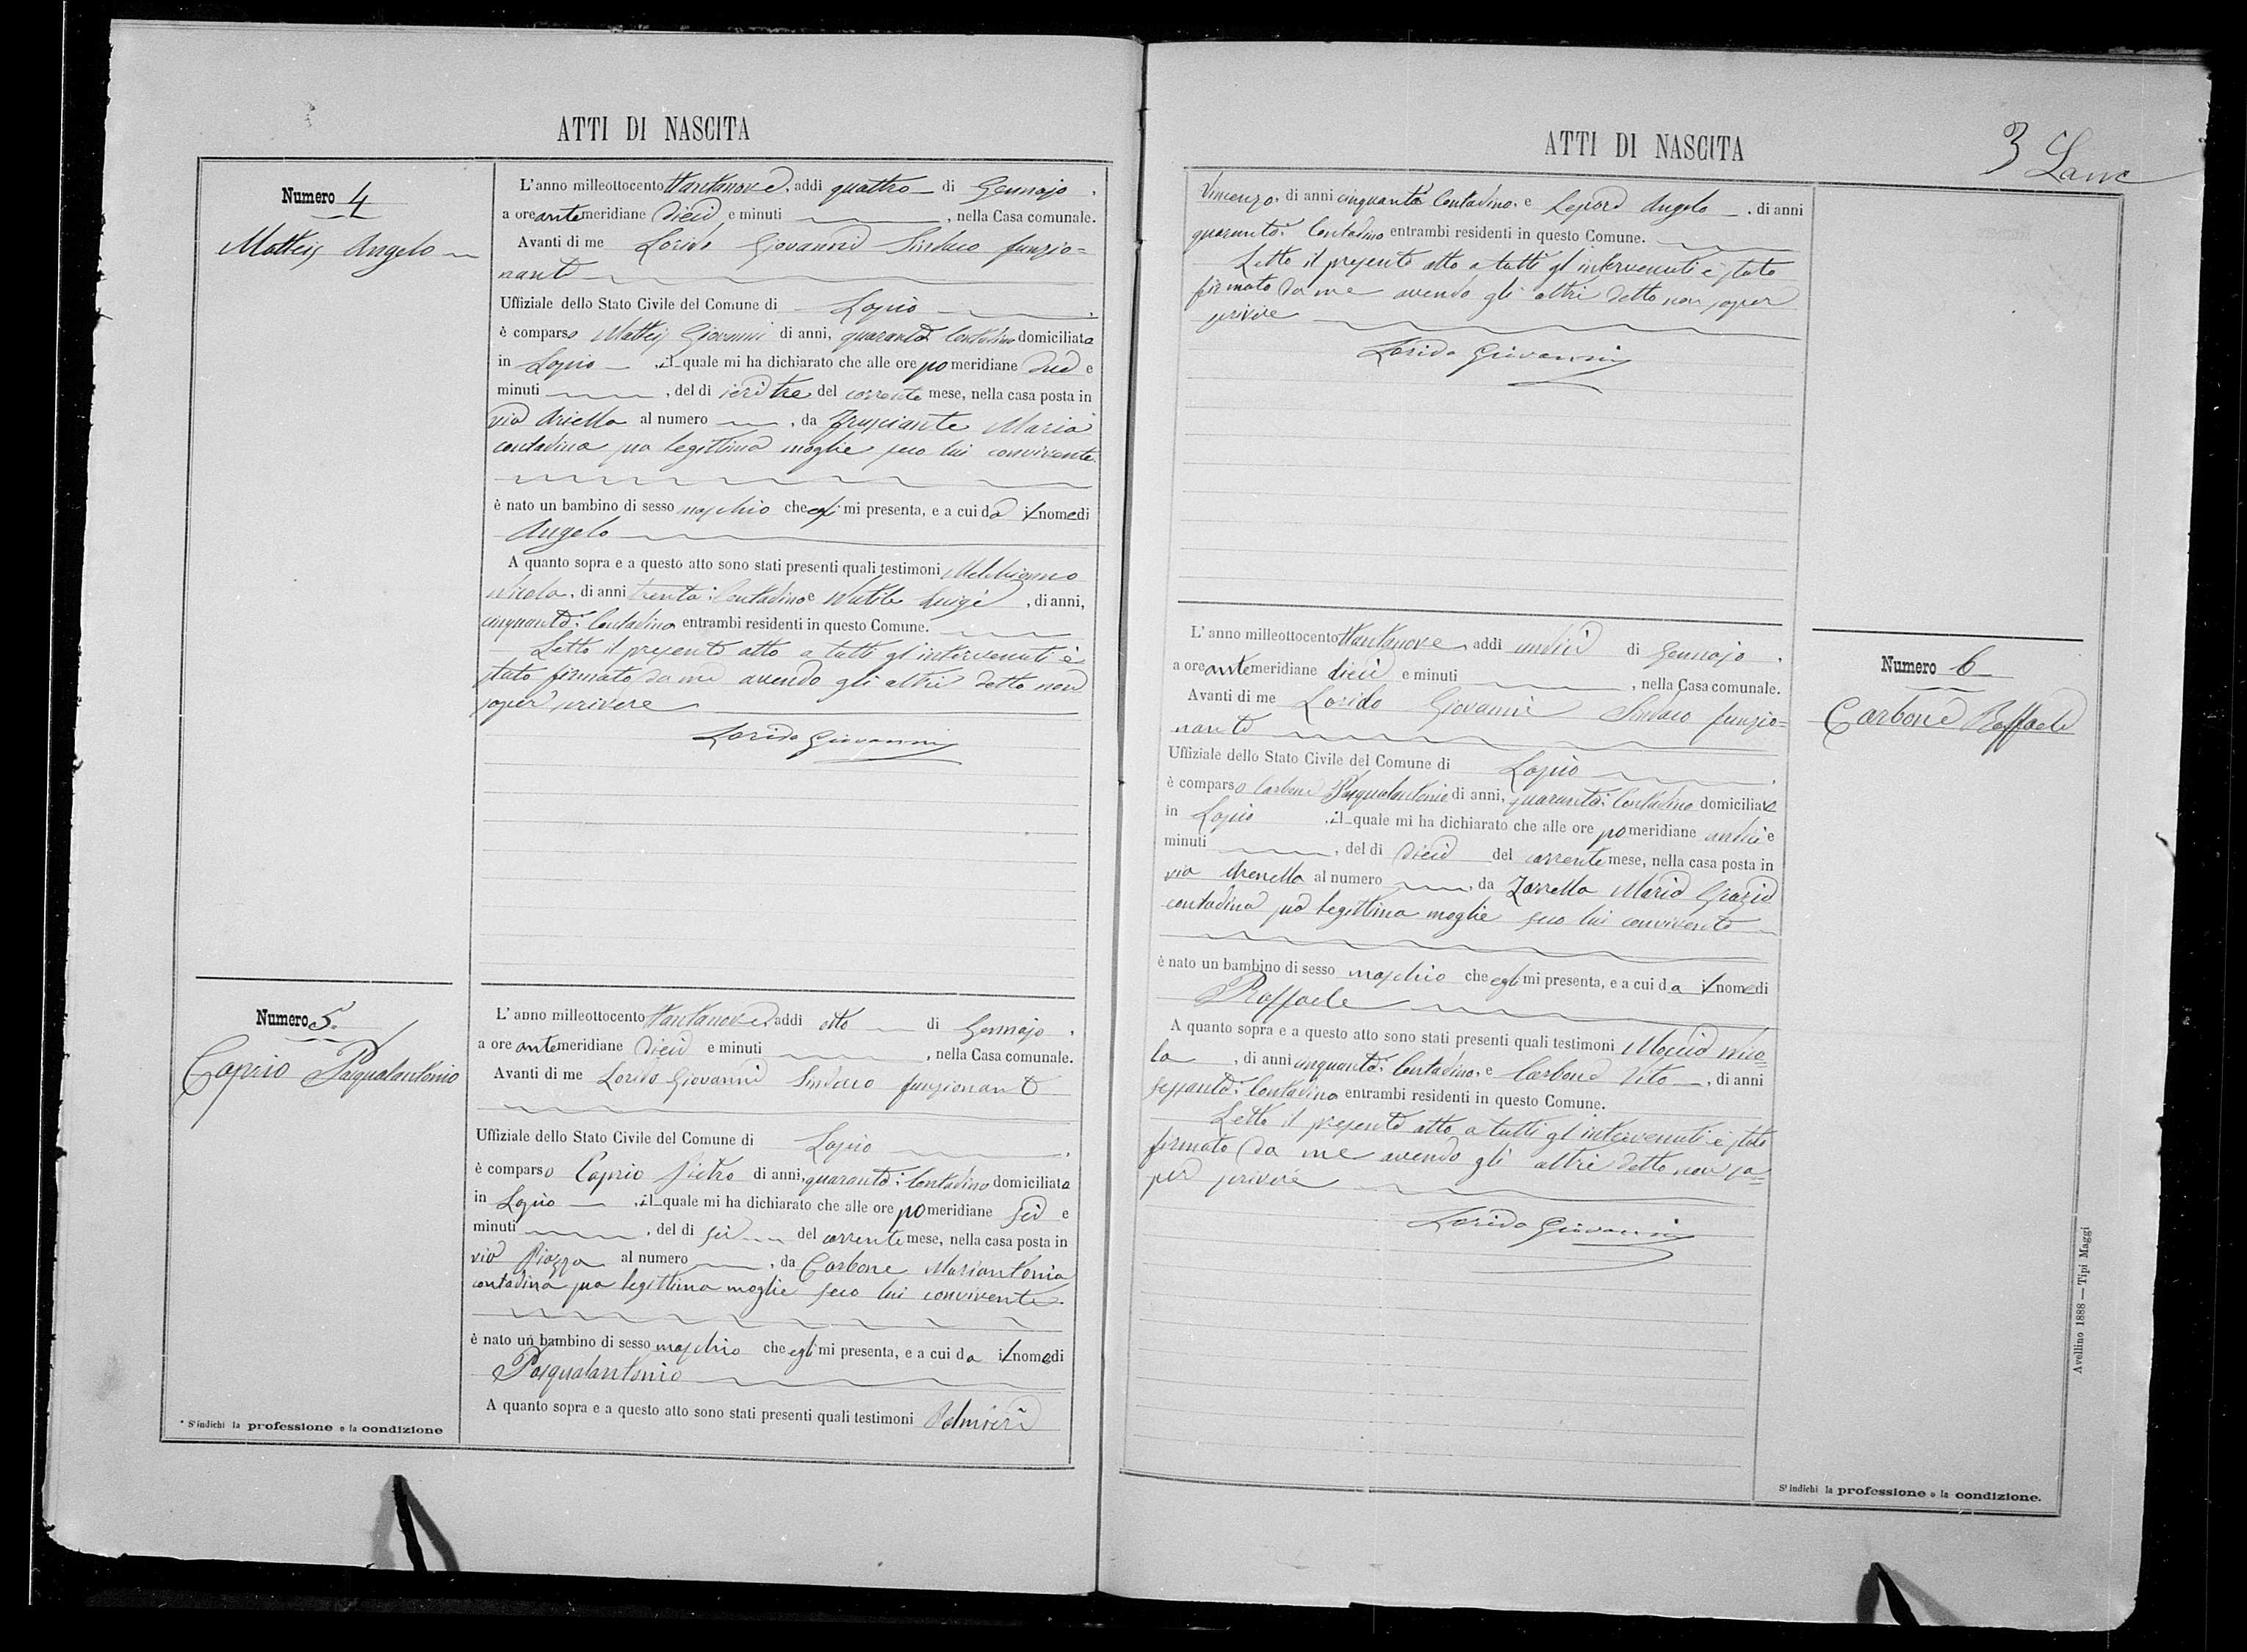 ATTI DI NASCITA
Numero 4
Matteis Angelo
L'anno milleottocento ttantanove, addi quattro di Gennajo,
a ore antemeridiane dieci e minuti , nella Casa comunale.
Avanti di me Lorido Giovanni Sindaco funzio=
nante
Uffiziale dello Stato Civile del Comune di Lapio.
è comparso Matteis Giovanni di anni, quaranta Contadino domiciliato
in Lapio, il quale mi ha dichiarato che alle ore pomeridiane due e
minuti , del di ieri tre del corrente mese, nella casa posta in
via Ariella al numero , da Frusciante Maria
contadina sua legittima moglie seco lui convivente.
è nato un bambino di sesso maschio che egli mi presenta, e a cui da il nome di
Angelo
A quanto sopra e a questo atto sono stati presenti quali testimoni
Nicola, di anni trenta: Contadino e Luigi, di anni,
cinquanta: Contadino entrambi residenti in questo Comune.
Letto il presente atto a tutti gl'intervenuti è
stato firmato da me avendo gli altri detto non
saper scrivere
Lorido Giovanni
Numero 5.
Caprio Pasqualantonio
L'anno milleottocento ttantanove, addi otto di Gennajo,
a ore antemeridiane dieci e minuti , nella Casa comunale.
Avanti di me Lorido Giovanni Sindaco funzionante
Uffiziale dello Stato Civile del Comune di Lapio.
è comparso Caprio Pietro di anni, quaranta: Contadino domiciliato
in Lapio, il quale mi ha dichiarato che alle ore pomeridiane sei e
minuti , del di sei del corrente mese, nella casa posta in
via Piazza al numero , da Carbone Mariantonia
contadina sua legittima moglie seco lui convivente.
è nato un bambino di sesso maschio che egli mi presenta, e a cui da il nome di
Pasqualantonio
A quanto sopra e a questo atto sono stati presenti quali testimoni Palmieri
* S'indichi la professione o la condizione
ATTI DI NASCITA
3
Vincenzo, di anni cinquanta Contadino, e Lepore Angelo, di anni
quaranta: Contadino entrambi residenti in questo Comune.
Letto il presente atto a tutti gl'intervenuti è stato
firmato da me avendo gli altri detto non saper
scrivere
Lorido Giovanni
L'anno milleottocento ttantanove, addi undici di Gennajo,
a ore antemeridiane dieci e minuti , nella Casa comunale.
Avanti di me Lorido Giovanni Sindaco funzio=
nante
Uffiziale dello Stato Civile del Comune di Lapio.
è comparso Carbone Pasqualantonio di anni, quaranta: Contadino domiciliato
in Lapio, il quale mi ha dichiarato che alle ore pomeridiane undici e
minuti , del di dieci del corrente mese, nella casa posta in
via Arenella al numero , da Zarrella Maria Grazia
contadina sua legittima moglie seco lui convivente
è nato un bambino di sesso maschio che egli mi presenta, e a cui da il nome di
Raffaele
A quanto sopra e a questo atto sono stati presenti quali testimoni Moccia Nico=
la, di anni cinquanta: Contadino, e Carbone Vito, di anni
sessanta: Contadino entrambi residenti in questo Comune.
Letto il presente atto a tutti gl'intervenuti è stato
firmato da me avendo gli altri detto non sa=
per scrivere
Lorido Giovanni
Numero 6
Carbone Raffaele
Avellino 1888 — Tipi Maggi
S'indichi la professione o la condizione.